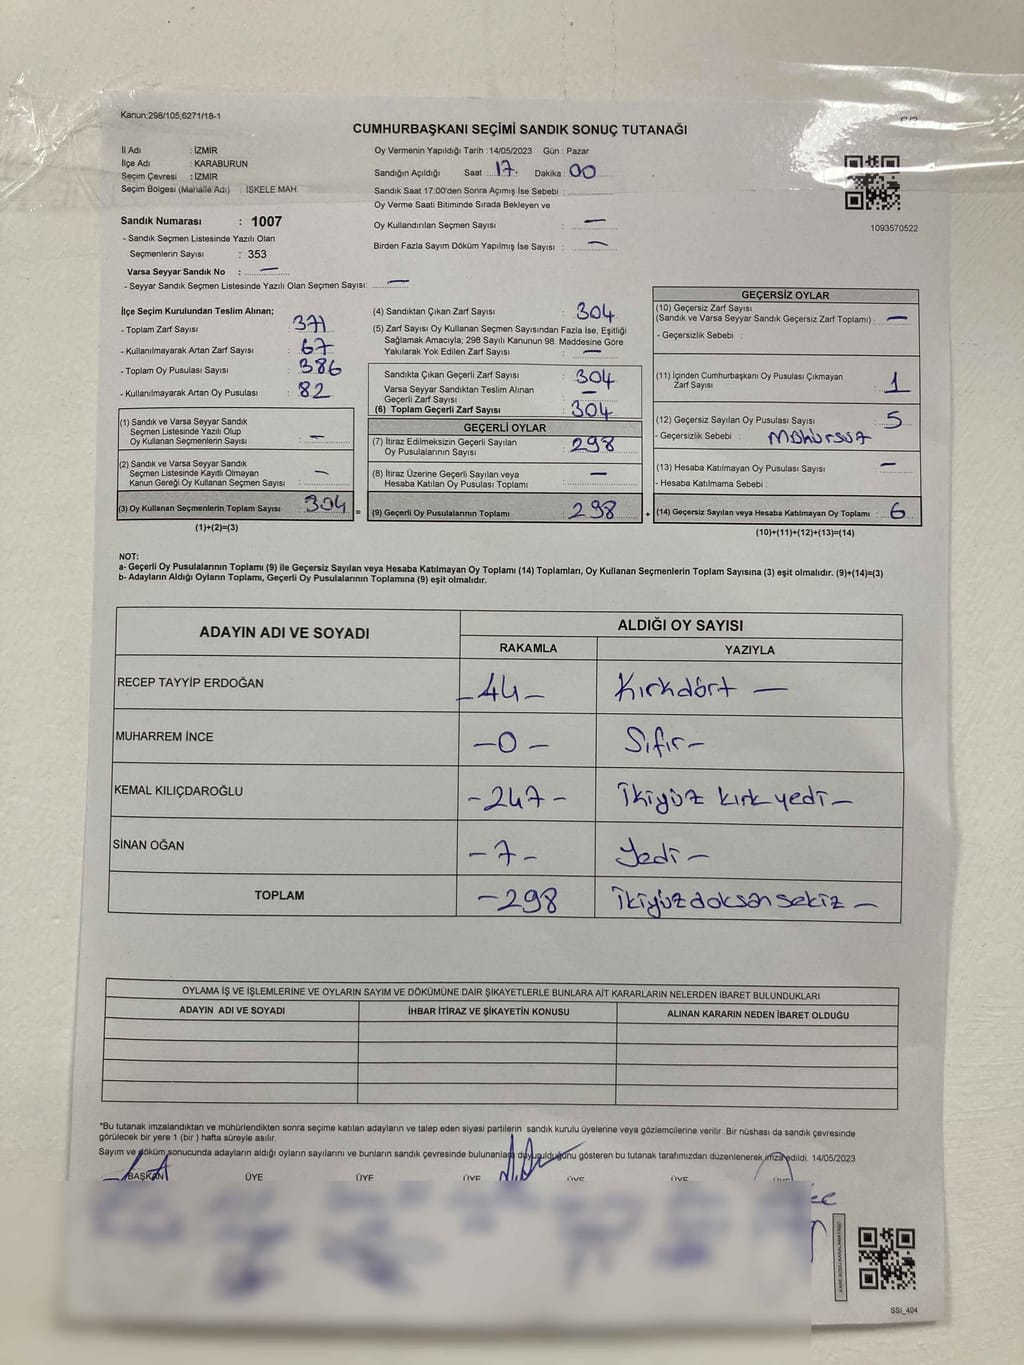 Kanun;298/105,6271/18-1
CUMHURBAŞKANI SEÇİMİ SANDIK SONUÇ TUTANAĞI
İl Adı : İZMİR
İlçe Adı : KARABURUN
Seçim Çevresi : İZMİR
Seçim Bölgesi (Mahalle Adı) : İSKELE MAH.
Oy Vermenin Yapıldığı Tarih :14/05/2023 Gün : Pazar
Sandığın Açıldığı Saat : 17 Dakika : 00
Sandık Saat 17:00'den Sonra Açımış İse Sebebi :
Oy Verme Saati Bitiminde Sırada Bekleyen ve
Oy Kullandırılan Seçmen Sayısı : —
Birden Fazla Sayım Döküm Yapılmış İse Sayısı : —
1093570522
Sandık Numarası : 1007
- Sandık Seçmen Listesinde Yazılı Olan
Seçmenlerin Sayısı : 353
Varsa Seyyar Sandık No : —
- Seyyar Sandık Seçmen Listesinde Yazılı Olan Seçmen Sayısı: —
İlçe Seçim Kurulundan Teslim Alınan;
- Toplam Zarf Sayısı : 371
- Kullanılmayarak Artan Zarf Sayısı : 67
- Toplam Oy Pusulası Sayısı : 386
- Kullanılmayarak Artan Oy Pusulası : 82
(1) Sandık ve Varsa Seyyar Sandık
Seçmen Listesinde Yazılı Olup
Oy Kullanan Seçmenlerin Sayısı : —
(2) Sandık ve Varsa Seyyar Sandık
Seçmen Listesinde Kayıtlı Olmayan
Kanun Gereği Oy Kullanan Seçmen Sayısı : —
(3) Oy Kullanan Seçmenlerin Toplam Sayısı : 304 =
(1)+(2)=(3)
(4) Sandıktan Çıkan Zarf Sayısı : 304
(5) Zarf Sayısı Oy Kullanan Seçmen Sayısından Fazla İse, Eşitliği
Sağlamak Amacıyla; 298 Sayılı Kanunun 98. Maddesine Göre
Yakılarak Yok Edilen Zarf Sayısı : —
Sandıkta Çıkan Geçerli Zarf Sayısı : 304
Varsa Seyyar Sandıktan Teslim Alınan
Geçerli Zarf Sayısı : —
(6) Toplam Geçerli Zarf Sayısı : 304
GEÇERLİ OYLAR
(7) İtiraz Edilmeksizin Geçerli Sayılan
Oy Pusulalarının Sayısı : 298
(8) İtiraz Üzerine Geçerli Sayılan veya
Hesaba Katılan Oy Pusulası Toplamı : —
(9) Geçerli Oy Pusulalarının Toplamı : 298 +
GEÇERSİZ OYLAR
(10) Geçersiz Zarf Sayısı
(Sandık ve Varsa Seyyar Sandık Geçersiz Zarf Toplamı) : —
- Geçersizlik Sebebi :
(11) İçinden Cumhurbaşkanı Oy Pusulası Çıkmayan
Zarf Sayısı : 1
(12) Geçersiz Sayılan Oy Pusulası Sayısı : 5
- Geçersizlik Sebebi : Mühürsüz
(13) Hesaba Katılmayan Oy Pusulası Sayısı : —
- Hesaba Katılmama Sebebi :
(14) Geçersiz Sayılan veya Hesaba Katılmayan Oy Toplamı : 6
(10)+(11)+(12)+(13)=(14)
NOT:
a- Geçerli Oy Pusulalarının Toplamı (9) ile Geçersiz Sayılan veya Hesaba Katılmayan Oy Toplamı (14) Toplamları, Oy Kullanan Seçmenlerin Toplam Sayısına (3) eşit olmalıdır. (9)+(14)=(3)
b- Adayların Aldığı Oyların Toplamı, Geçerli Oy Pusulalarının Toplamına (9) eşit olmalıdır.
ADAYIN ADI VE SOYADI
ALDIĞI OY SAYISI
RAKAMLA YAZIYLA
RECEP TAYYİP ERDOĞAN -44- Kırkdört —
MUHARREM İNCE -0- Sıfır-
KEMAL KILIÇDAROĞLU -247- İkiyüz kırk yedi-
SİNAN OĞAN -7- Yedi-
TOPLAM -298 İkiyüzdoksan sekiz -
OYLAMA İŞ VE İŞLEMLERİNE VE OYLARIN SAYIM VE DÖKÜMÜNE DAİR ŞİKAYETLERLE BUNLARA AİT KARARLARIN NELERDEN İBARET BULUNDUKLARI
ADAYIN ADI VE SOYADI İHBAR İTİRAZ VE ŞİKAYETİN KONUSU ALINAN KARARIN NEDEN İBARET OLDUĞU
*Bu tutanak imzalandıktan ve mühürlendikten sonra seçime katılan adayların ve talep eden siyasi partilerin sandık kurulu üyelerine veya gözlemcilerine verilir. Bir nüshası da sandık çevresinde
görülecek bir yere 1 (bir ) hafta süreyle asılır.
Sayım ve döküm sonucunda adayların aldığı oyların sayılarını ve bunların sandık çevresinde bulunanlara duyurulduğunu gösteren bu tutanak tarafımızdan düzenlenerek imza edildi. 14/05/2023
BAŞKAN ÜYE ÜYE ÜYE ÜYE ÜYE ÜYE
SSI_404